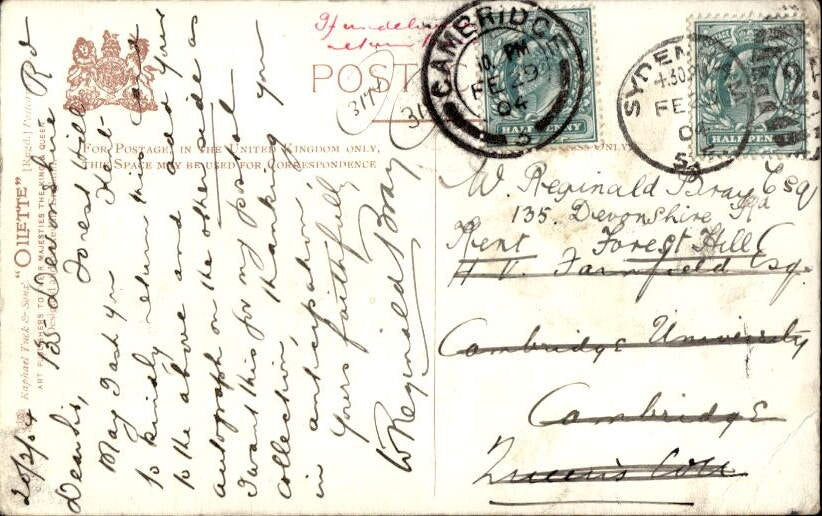 Raphael Tuck & Sons' "OILETTE" [Regd.]
ART PUBLISHERS TO THEIR MAJESTIES THE KING & QUEEN.
POST
FOR POSTAGE, IN THE UNITED KINGDOM ONLY,
THIS SPACE MAY BE USED FOR CORRESPONDENCE
3174
135 Devonshire Rd
Forest Hill
20/2/04
Dear Sir,
May I ask you
to kindly return this card
to the above and add your
autograph on the other side as
I want this for my postal
collection, thanking you
in anticipation
Yours faithfully
W Reginald Bray
return
CAMBRIDGE
10. PM
FE 29
04
3
HALFPENNY
SYDEN
4.30
FE
04
HALFPENNY
ONLY
W. Reginald Bray Esq
135. Devonshire Rd
Forest Hill
Kent
Esq.
Cambridge University
Cambridge
Queen's Coll